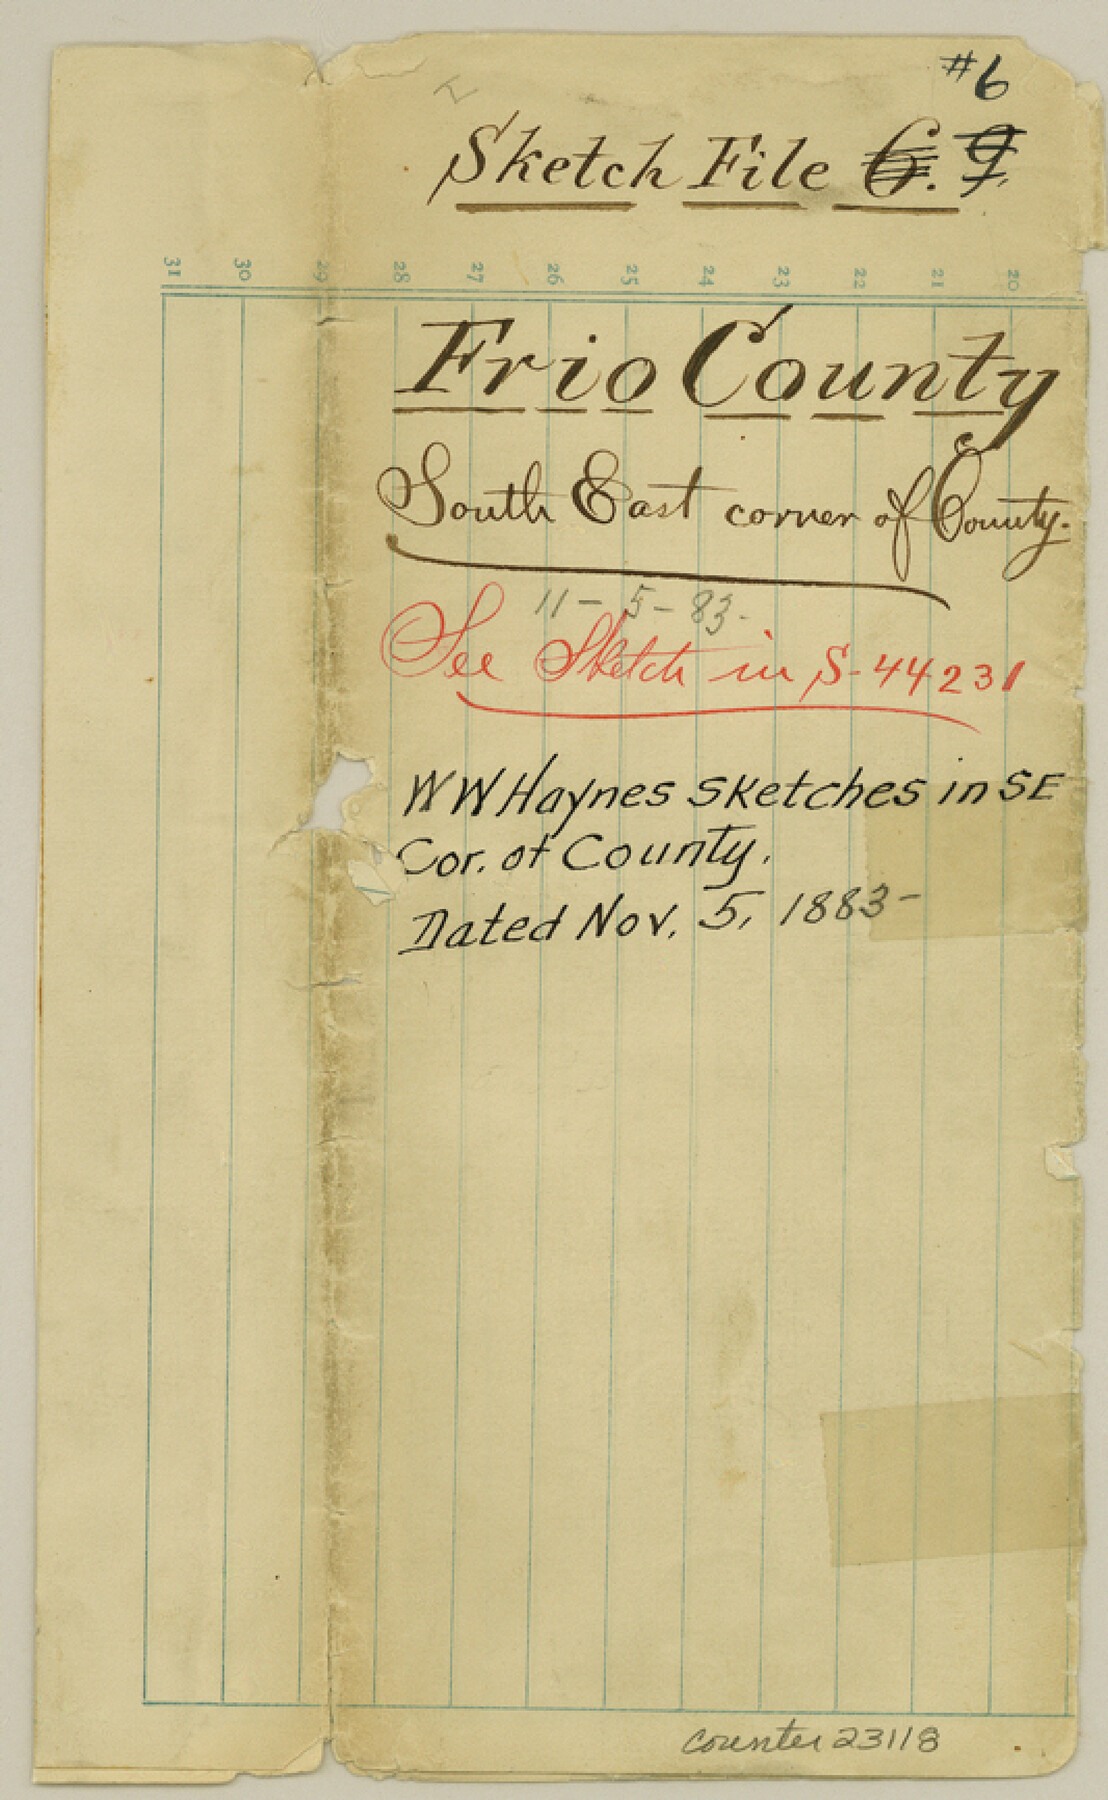 #6
Sketch File 6. 9.
31 30 29 28 27 26 25 24 23 22 21 20
Frio County
South East corner of County.
11-5-83.
See Sketch in S-44231
WW Haynes sketches in SE
Cor. of County.
Dated Nov. 5, 1883-
counter 23118